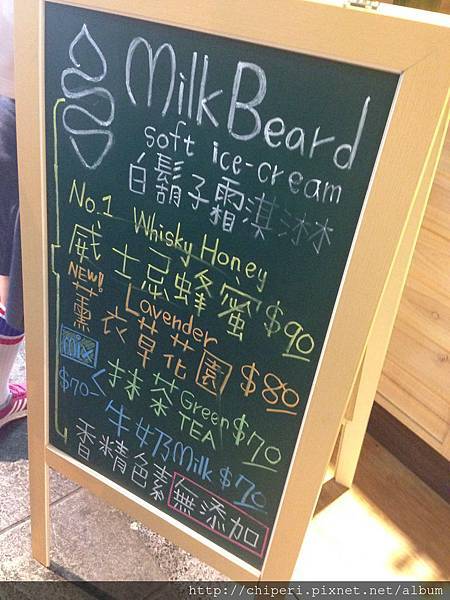 MilkBeard
soft ice-cream
白鬍子霜淇淋
No.1 Whisky Honey
威士忌蜂蜜 $90
NEW! Lavender
薰衣草花園 $80
mix
$70
抹茶 Green TEA $70
牛奶 Milk $70
香精色素無添加
http://chiperi.pixnet.net/album